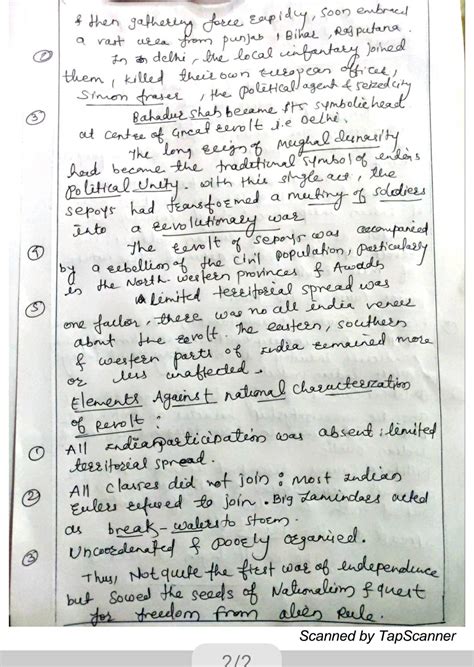 & then gathering force rapidly, soon embraced
a vast area from punjab, Bihar, Rajputana.
② In delhi, the local infantary joined
them, killed their own European officer,
Simon fraser, the political agent & seized city
③ Bahadur shah became its symbolic head
at centre of Great revolt i.e Delhi.
The long reign of Mughal dynasity
had become the traditional symbol of India's
Political Unity. with this single act, the
sepoys had transformed a mutiny of soldiers
into a revolutionary war
④ The revolt of sepoys was accompanied
by a rebellion of the civil population, particularly
in the North western provinces & Awadh
⑤ A limited territorial spread was
one factor, there was no all india veneer
about the revolt. The eastern, southern
& western parts of India remained more
or less unaffected.
Elements Against national characterization
of revolt:
① All India participation was absent: limited
territorial spread.
② All classes did not join: most Indian
rulers refused to join. Big zamindars acted
as break-waters to storm.
③ Uncoordenated & poorly organised.
Thus, Not quite the first war of independence
but sowed the seeds of Nationalism & quest
for freedom from alien Rule.
Scanned by TapScanner
2/2